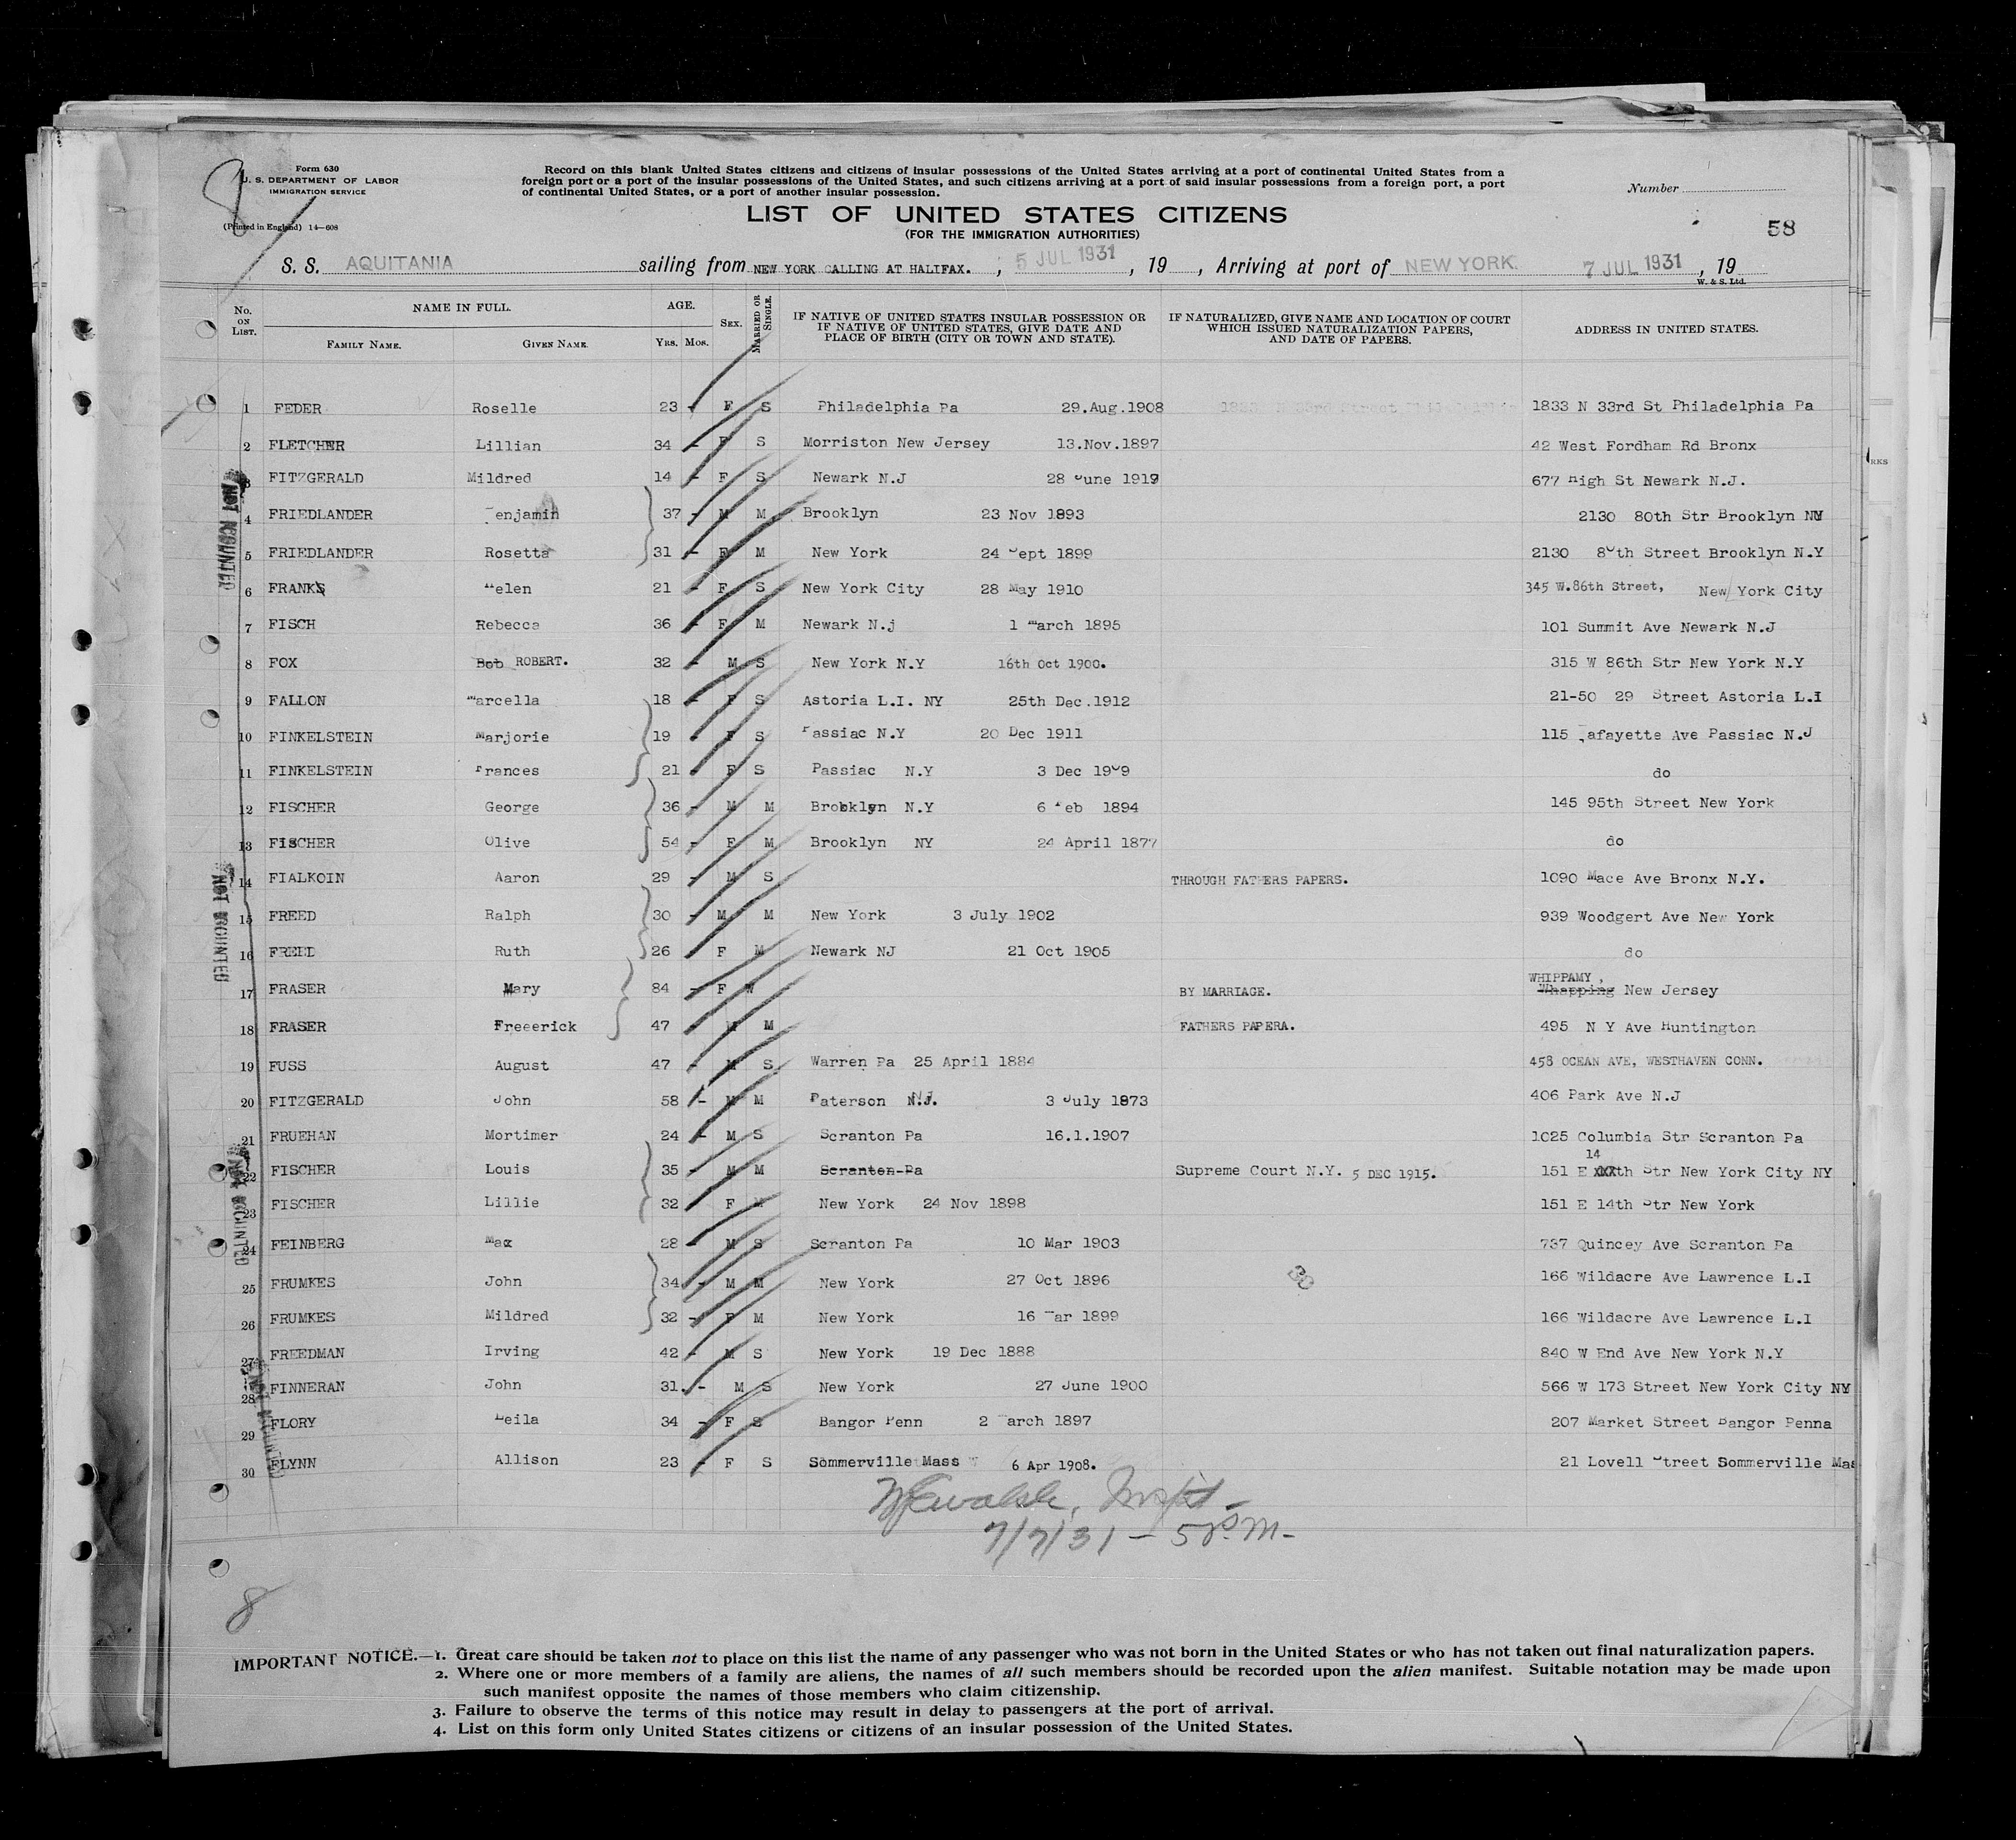 Form 630
U. S. DEPARTMENT OF LABOR
IMMIGRATION SERVICE
(Printed in England) 14—608
8
Record on this blank United States citizens and citizens of insular possessions of the United States arriving at a port of continental United States from a
foreign port or a port of the insular possessions of the United States, and such citizens arriving at a port of said insular possessions from a foreign port, a port
of continental United States, or a port of another insular possession.
Number
LIST OF UNITED STATES CITIZENS
(FOR THE IMMIGRATION AUTHORITIES)
58
S. S. AQUITANIA sailing from NEW YORK CALLING AT HALIFAX. , 5 JUL 1931 , 19 , Arriving at port of NEW YORK. 7 JUL 1931 , 19
W. & S. Ltd.
No. ON LIST. NAME IN FULL. FAMILY NAME. GIVEN NAME. AGE. YRS. MOS. SEX. MARRIED OR SINGLE. IF NATIVE OF UNITED STATES INSULAR POSSESSION OR IF NATIVE OF UNITED STATES, GIVE DATE AND PLACE OF BIRTH (CITY OR TOWN AND STATE). IF NATURALIZED, GIVE NAME AND LOCATION OF COURT WHICH ISSUED NATURALIZATION PAPERS, AND DATE OF PAPERS. ADDRESS IN UNITED STATES.
1 FEDER Roselle 23 - F S Philadelphia Pa 29.Aug.1908 1833 N 33rd St Philadelphia Pa
2 FLETCHER Lillian 34 - F S Morriston New Jersey 13.Nov.1897 42 West Fordham Rd Bronx
3 FITZGERALD Mildred 14 - F S Newark N.J 28 June 1919 677 High St Newark N.J.
4 FRIEDLANDER Benjamin 37 - M M Brooklyn 23 Nov 1893 2130 80th Str Brooklyn NY
5 FRIEDLANDER Rosetta 31 - F M New York 24 Sept 1899 2130 80th Street Brooklyn N.Y
6 FRANKS Helen 21 - F S New York City 28 May 1910 345 W.86th Street, New York City
7 FISCH Rebecca 36 - F M Newark N.j 1 March 1895 101 Summit Ave Newark N.J
8 FOX Bob ROBERT. 32 - M S New York N.Y 16th Oct 1900. 315 W 86th Str New York N.Y
9 FALLON Marcella 18 - F S Astoria L.I. NY 25th Dec.1912 21-50 29 Street Astoria L.I
10 FINKELSTEIN Marjorie 19 - F S Passiac N.Y 20 Dec 1911 115 Lafayette Ave Passiac N.J
11 FINKELSTEIN Frances 21 - F S Passiac N.Y 3 Dec 1909 do
12 FISCHER George 36 - M M Brooklyn N.Y 6 Feb 1894 145 95th Street New York
13 FISCHER Olive 54 - F M Brooklyn NY 24 April 1877 do
14 FIALKOIN Aaron 29 - M S THROUGH FATHERS PAPERS. 1090 Mace Ave Bronx N.Y.
15 FREED Ralph 30 - M M New York 3 July 1902 939 Woodgert Ave New York
16 FREED Ruth 26 F M Newark NJ 21 Oct 1905 do
17 FRASER Mary 84 - F W BY MARRIAGE. WHIPPAMY, Whapping New Jersey
18 FRASER Freeerick 47 - M M FATHERS PAPERA. 495 N Y Ave Huntington
19 FUSS August 47 - M S Warren Pa 25 April 1884 458 OCEAN AVE, WESTHAVEN CONN.
20 FITZGERALD John 58 - M M Paterson N.J. 3 July 1873 406 Park Ave N.J
21 FRUEHAN Mortimer 24 - M S Scranton Pa 16.1.1907 1025 Columbia Str Scranton Pa
22 FISCHER Louis 35 - M M Scranton-Pa Supreme Court N.Y. 5 DEC 1915. 151 E 14 XXXth Str New York City NY
23 FISCHER Lillie 32 F M New York 24 Nov 1898 151 E 14th Str New York
24 FEINBERG Max 28 - M S Scranton Pa 10 Mar 1903 737 Quincey Ave Scranton Pa
25 FRUMKES John 34 - M M New York 27 Oct 1896 166 Wildacre Ave Lawrence L.I
26 FRUMKES Mildred 32 - F M New York 16 Mar 1899 166 Wildacre Ave Lawrence L.I
27 FREEDMAN Irving 42 - M S New York 19 Dec 1888 840 W End Ave New York N.Y
28 FINNERAN John 31. - M S New York 27 June 1900 566 W 173 Street New York City NY
29 FLORY Leila 34 - F S Bangor Penn 2 March 1897 207 Market Street Bangor Penna
30 FLYNN Allison 23 - F S Sommerville Mass 6 Apr 1908. 21 Lovell Street Sommerville Mas
NOT ACCOUNTED
NOT ACCOUNTED
NOT ACCOUNTED
7/7/31 — 5 P.M—
8
IMPORTANT NOTICE.—1. Great care should be taken not to place on this list the name of any passenger who was not born in the United States or who has not taken out final naturalization papers.
2. Where one or more members of a family are aliens, the names of all such members should be recorded upon the alien manifest. Suitable notation may be made upon
such manifest opposite the names of those members who claim citizenship.
3. Failure to observe the terms of this notice may result in delay to passengers at the port of arrival.
4. List on this form only United States citizens or citizens of an insular possession of the United States.